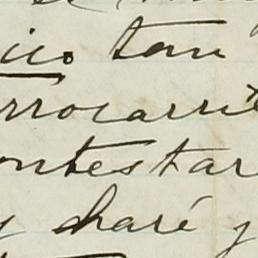 ico tan
rrocarri
ontestar
y haré y